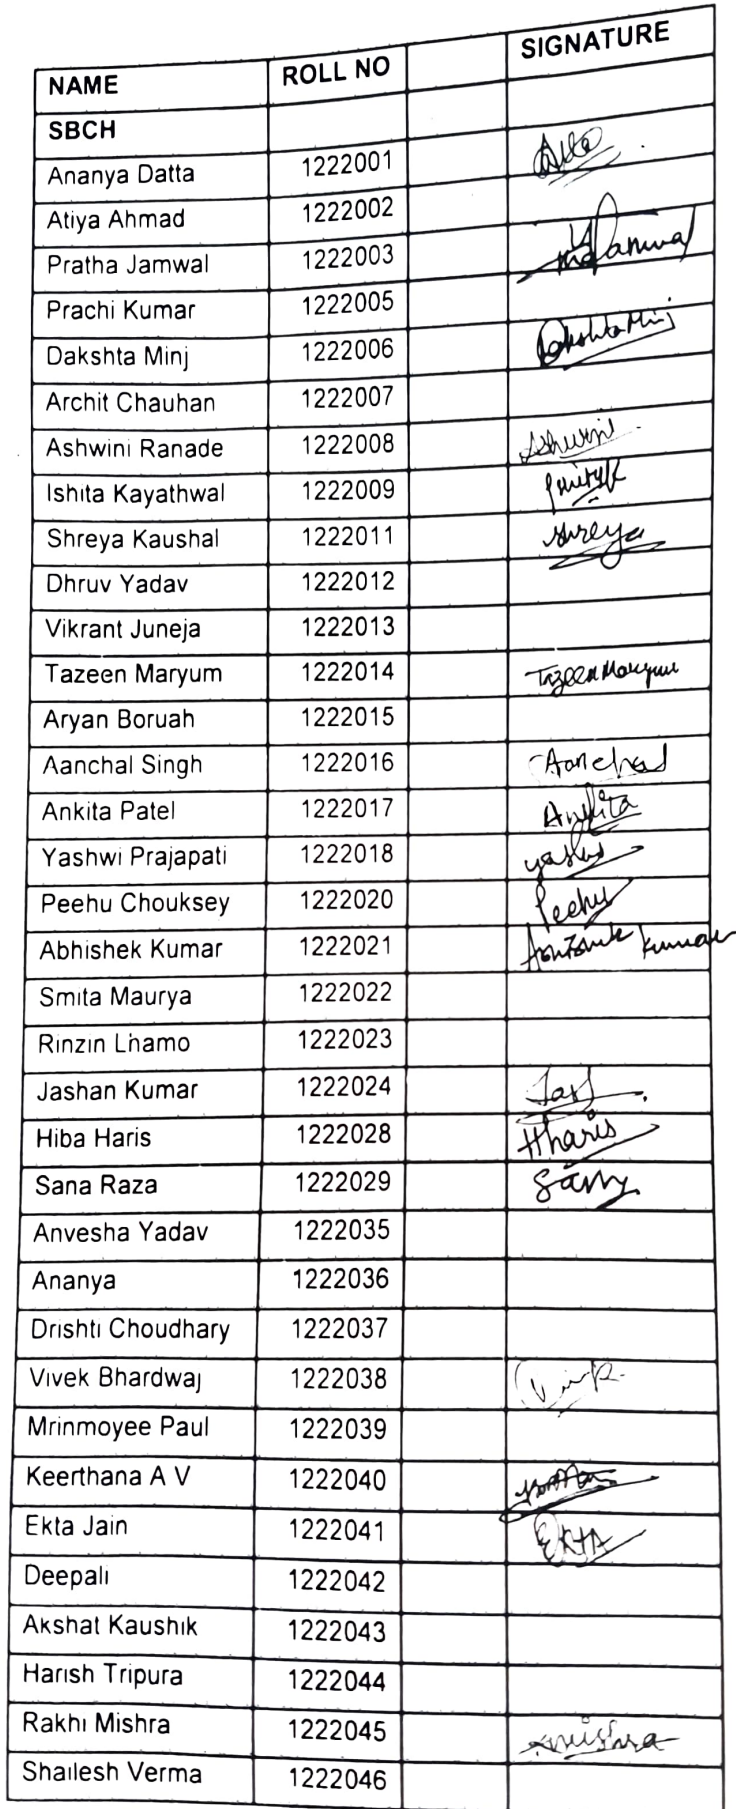 NAME ROLL NO SIGNATURE
SBCH
Ananya Datta 1222001
Atiya Ahmad 1222002
Pratha Jamwal 1222003
Prachi Kumar 1222005
Dakshta Minj 1222006 Dakshta Minj
Archit Chauhan 1222007
Ashwini Ranade 1222008 Ashwini
Ishita Kayathwal 1222009
Shreya Kaushal 1222011 Shreya
Dhruv Yadav 1222012
Vikrant Juneja 1222013
Tazeen Maryum 1222014 Tazeen Maryum
Aryan Boruah 1222015
Aanchal Singh 1222016 Aanchal
Ankita Patel 1222017 Ankita
Yashwi Prajapati 1222018
Peehu Chouksey 1222020 Peehu
Abhishek Kumar 1222021 Abhishek Kumar
Smita Maurya 1222022
Rinzin Lhamo 1222023
Jashan Kumar 1222024
Hiba Haris 1222028 Hharis
Sana Raza 1222029
Anvesha Yadav 1222035
Ananya 1222036
Drishti Choudhary 1222037
Vivek Bhardwaj 1222038
Mrinmoyee Paul 1222039
Keerthana A V 1222040
Ekta Jain 1222041 EKTA
Deepali 1222042
Akshat Kaushik 1222043
Harish Tripura 1222044
Rakhi Mishra 1222045
Shailesh Verma 1222046